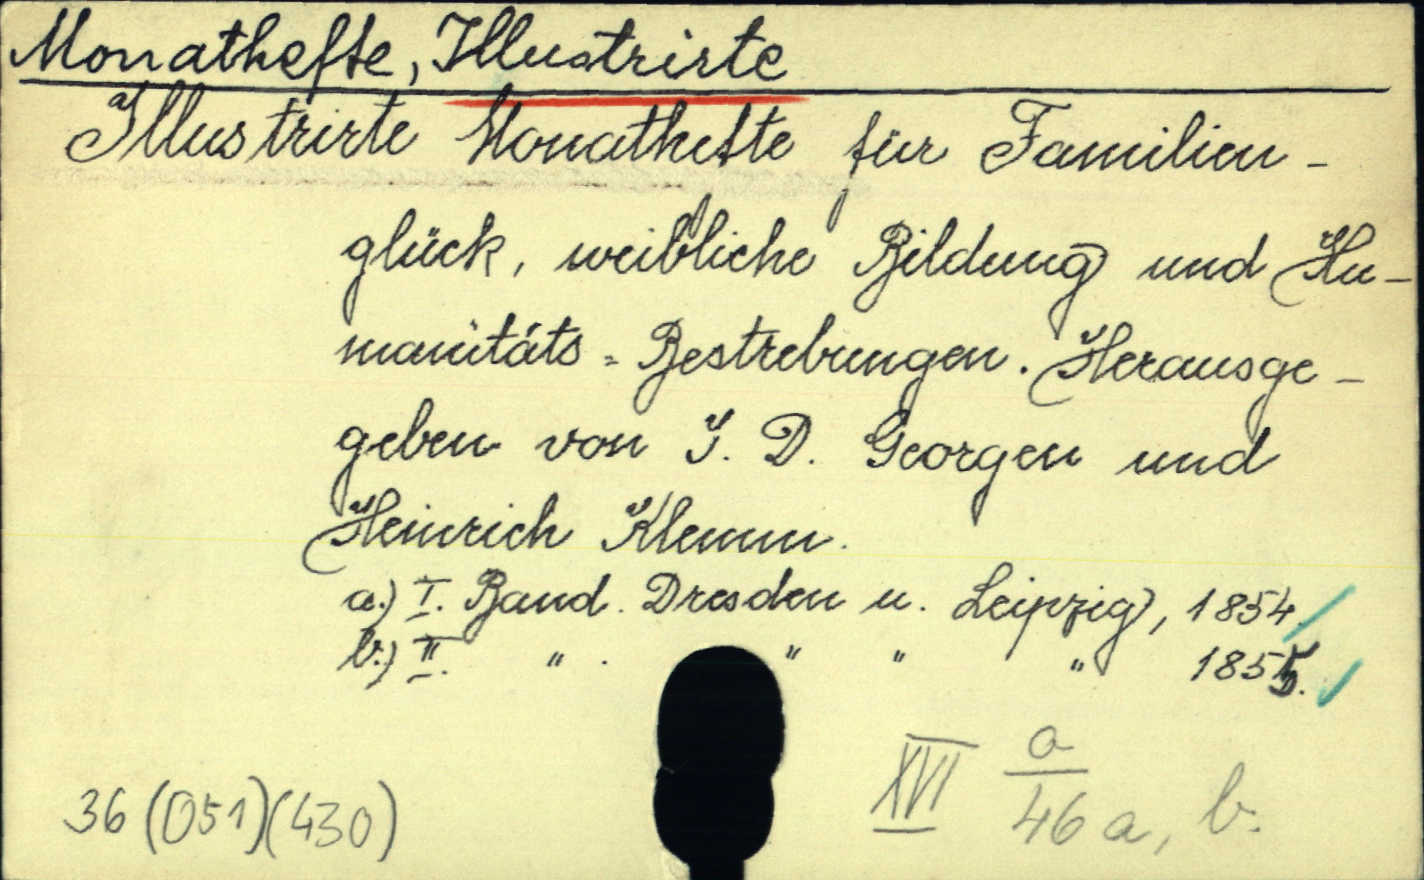 Monathefte, Illustrirte
Illustrirte Monathefte für Familien-
glück, weibliche Bildung und Hu-
manitäts=Bestrebungen. Herausge-
geben von J. D. Georgen und
Heinrich Klemm.
a.) I. Band. Dresden u. Leipzig, 1854.
b.) II. " . " " " 1855.
XVI a
36 (051)(430) 46 a, b.